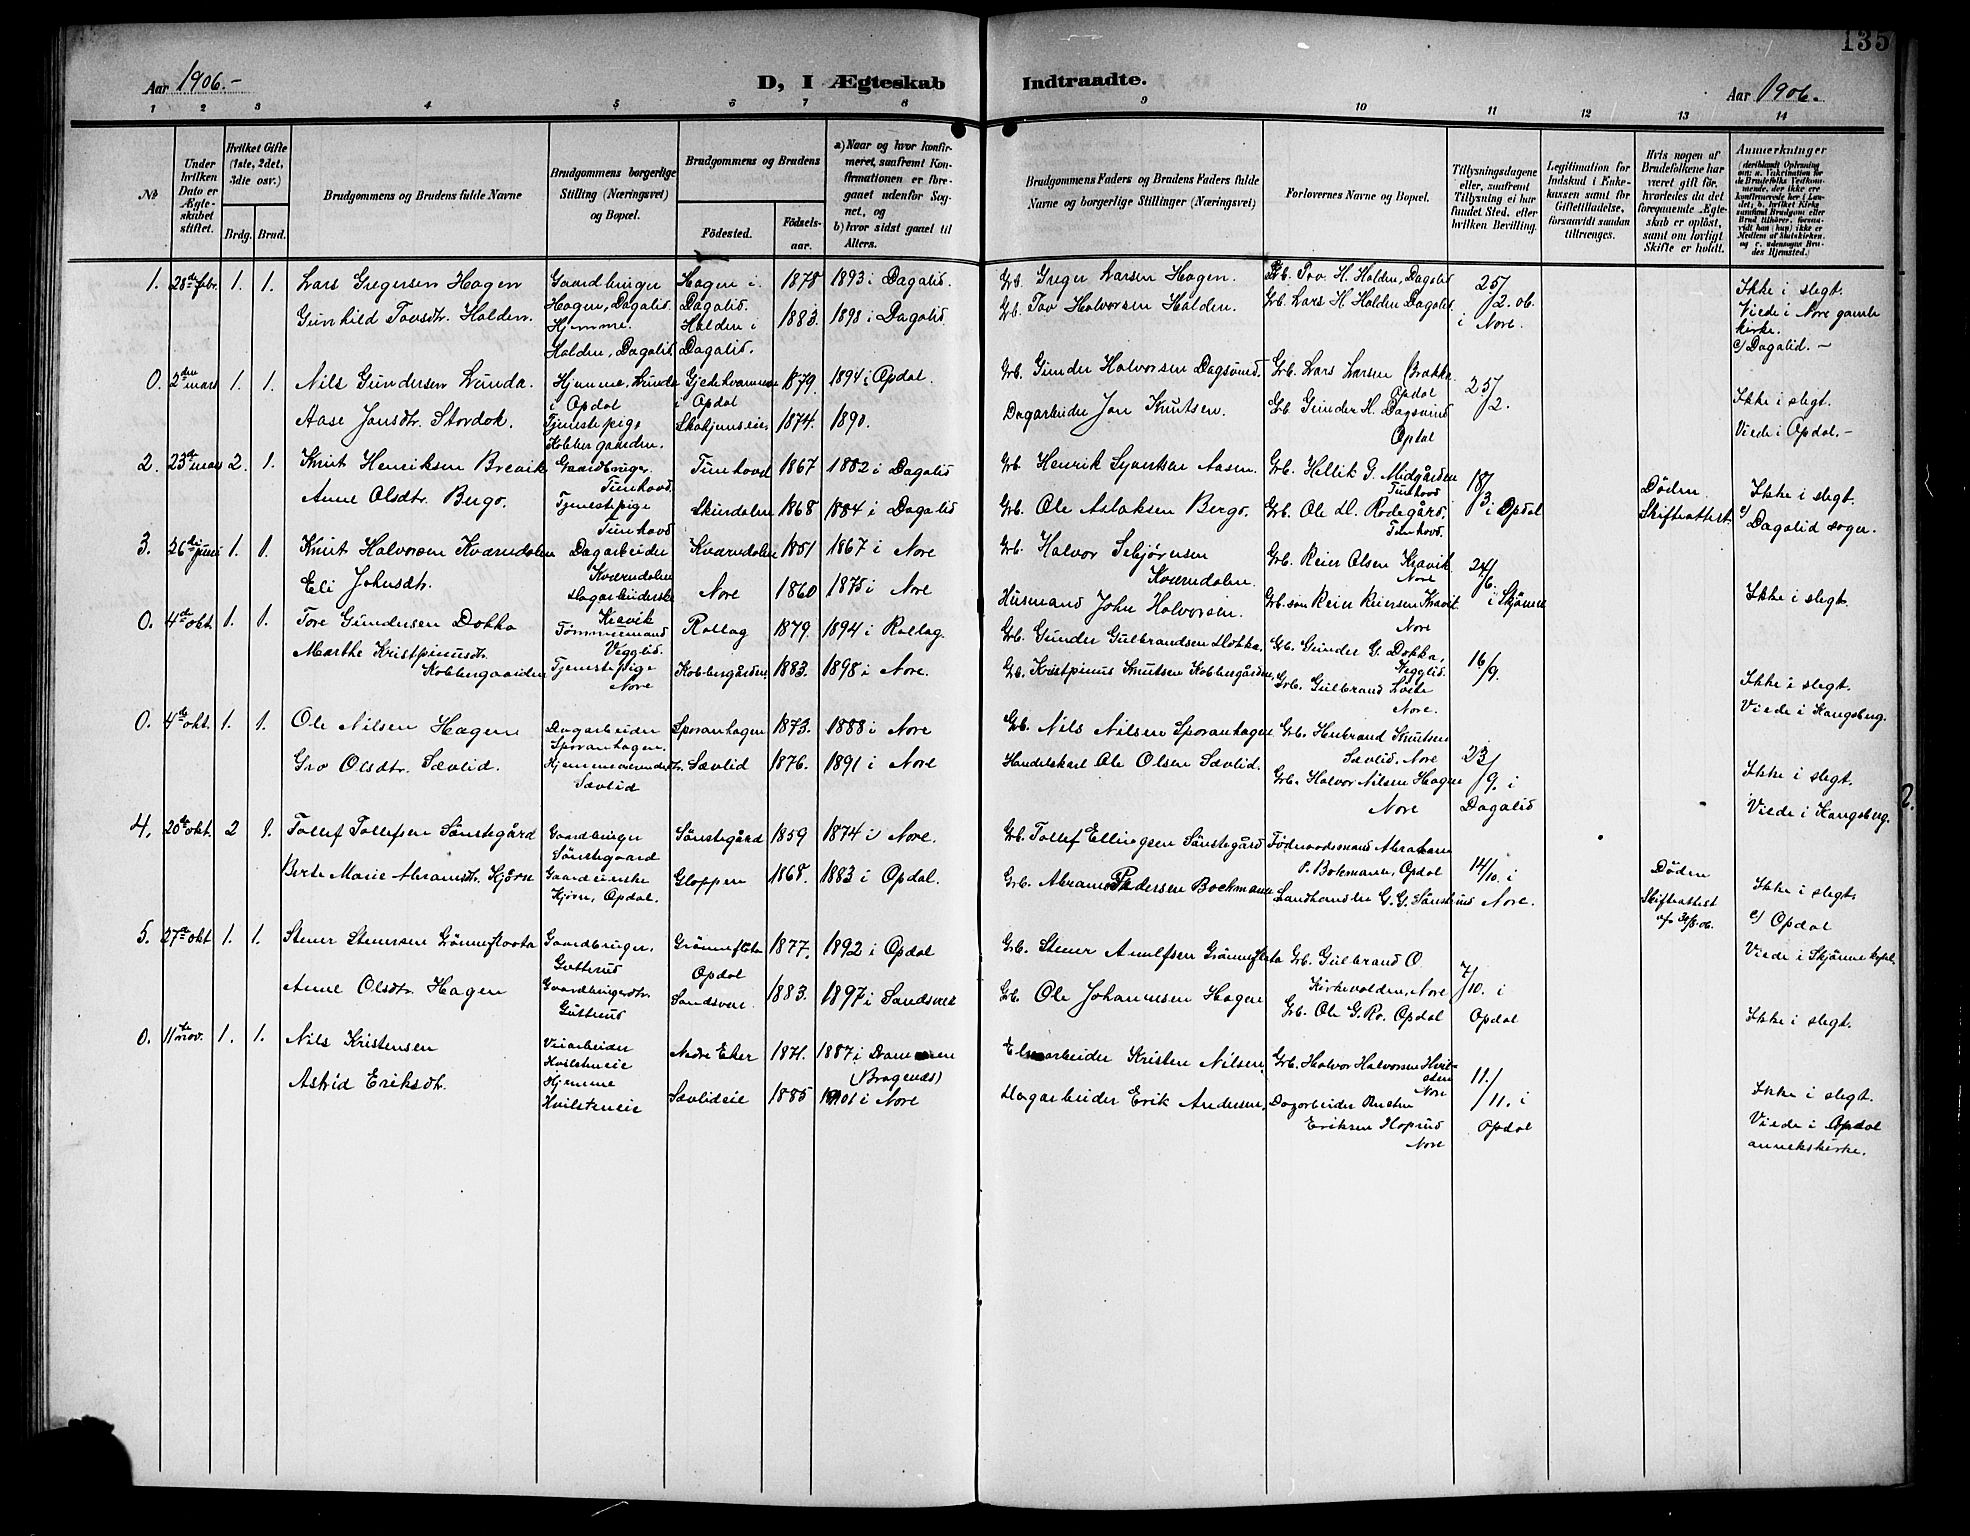 135
Aar 1906.-
D, I Ægteskab
Indtraadte.
Aar 1906.
1 2 3 4 5 6 7 8 9 10 11 12 13 14
No
Under hvilken Dato er Ægteskabet stiftet.
Hvilket Gifte (1ste, 2det, 3die osv.)
Brdg. Brud.
Brudgommens og Brudens fulde Navne
Brudgommens borgerlige Stilling (Næringsvei) og Bopæl.
Brudgommens og Brudens
Födested.
Födselsaar.
a) Naar og hvor konfirmeret, saafremt Konfirmationen er foregaaet udenfor Sognet, og
b) hvor sidst gaaet til Alters.
Brudgommens Faders og Brudens Faders fulde Navne og borgerlige Stillinger (Næringsvei)
Forlovernes Navne og Bopæl.
Tillysningsdagene eller, saafremt Tillysning ei har fundet Sted, efter hvilken Bevilling.
Legitimation for Indskud i Enkekassen samt for Giftetilladelse, forsaavidt saadan tiltrænges.
Hvis nogen af Brudefolkene har været gift för, hvorledes da det foregaaende Ægteskab er oplöst, samt om lovligt Skifte er holdt.
Anmerkninger
1. 28de febr. 1. 1. Lars Gregersen Hagen Gaardbruger Hagen i 1878 1893 i Dagalid. Grb. Greger Larsen Hagen. Grb. Tov H. Halden, Dagalid 25/2.06. Ikke i slegt.
Gunhild Tovsdtr. Halden. Hagen, Dagalid. Dagalid. 1883. 1898 i Dagalid. Grb. Tov Halvorsen Halden. Grb. Lars H. Halden Dagalid. i Nore. Viede i Nore gamle
Hjemme. Halden i kirke.
Halden, Dagalid. Dagalid. c) Dagalid. -
0. 2den mars 1. 1. Nils Gundersen Lunda. Hjemme, Lunde 1879. 1894 i Opdal. Grb. Gunder Halvorsen Dagsvind. Grb. Lars Larsen Brække Opdal 25/2. Ikke i slegt.
i Opdal i Opdal
Aase Jonsdtr. Stordok. Tjenestepige 1874. 1890. Dagarbeider Jon Knutsen. Grb Gunder H. Dagsvind Opdal Viede i Opdal.-
Kobbergaarden.
2. 23de mars 2. 1. Knut Henriksen Brevik Gaardbruger Tunhovd 1867 1882 i Dagalid Grb. Henrik Syvertsen Aasen. Grb. Hellik G. Midgården Tunhovd 18/3. i Opdal Døden. Ikke i slegt.
Tunhovd.
Anne Olsdtr. Bergo. Tjenestepige Skurdalen 1868 1884 i Dagalid Grb. Ole Aslaksen Bergo. Grb. Ole H. Rodegård, Tunhovd. Skifteattest. c) Dagalid sogn.
Tunhovd
3. 26de juni 1. 1. Knut Halvorsen Kværndalen Dagarbeider Kværndalen 1851 1867 i Nore Grb. Halvor Sebjørnsen Kværndalen. Grb. Reier Olsen Kravik Nore 24/6. i Skjønne
Kværndalen
Eli Johnsdtr. Dagarbeiderske Nore 1860 1875 i Nore Husmand John Halvorsen. Grb. søn Reier Reiersen Kravik Nore Ikke i slegt.
Kravik
0. 4de okt. 1. 1. Tore Gundersen Dokka Tømmermand Rollag 1879. 1894 i Rollag. Grb. Gunder Gulbrandsen Dokka. Grb. Gunder G. Dokka, Vegglid. 16/9.
Vegglid.
Marthe Kristpinusdtr. Kobbergaarden Tjenestepige Kobbergården 1883. 1898 i Nore. Grb. Kristpinus Knutsen Kobbergården. Grb. Gulbrand Nore. Ikke i slegt.
Nore Viede i Kongsberg.
0. 4de okt. 1. 1. Ole Nilsen Hagen Dagarbeider Sporanhagen 1873. 1888 i Nore Grb. Nils Nilsen Sporanhagen Grb. Knutsen Sævlid, Nore 23/9. i Dagalid
Sporanhagen.
Gro Olsdtr. Sævlid. Sævlid 1876. 1891 i Nore Handelskarl Ole Olsen Sævlid. Grb. Halvor Nilsen Hagen Nore Ikke i slegt.
Sævlid Viede i Kongsberg.
4. 20de okt. 2 1. Tollef Tollefsen Sönstegård Gaardbruger Sönstegård 1859 1874 i Nore. Grb. Tollef Ellingsen Sönstegård Abraham P. Bokmann, Opdal 14/10. i Nore. Døden
Sönstegaard
Berte Marie Abramsdtr. Hjörn Gaardeierske Gloppen 1868. 1883 i Opdal. Grb. Abram Pedersen Boekmann Landhandler G. G. Sönsterud Skifteattest af 3/8.06. Ikke i slegt.
Hjörn, Opdal. c) Opdal
5. 27de okt 1. 1. Stener Stenersen Grönneflaata Gaardbruger. Grönneflåta 1877. 1892 i Opdal Grb. Stener Arnulfsen Grönneflåta Grb. Gulbrand O. Kirkevolden, Nore 7/10. i Opdal Viede i Skjönne kapel.
Guttrud Opdal
Anne Olsdtr. Hagen Gaardbrugerdtr. Sandsver. 1883. 1897 i Sandsver Grb. Ole Johannesen Hagen Grb. Ole G. Ro. Opdal Ikke i slegt.
Guttrud
0. 11te nov. 1. 1. Nils Kristensen Veiarbeider Nedre Eker 1871. 1887 i Drammen (Bragenæs) Elvearbeider Kristen Nilsen. Grb. Halvor Halvorsen Nore 11./11. i Opdal
Hvilsteneie
Astrid Eriksdtr. Hjemme Sævlideie 1885 1901 i Nore Dagarbeider Erik Andersen. Dagarbeider Eriksen Hoprud Nore Ikke i slegt.
Hvilsteneie Viede i Opdal annekskirke.